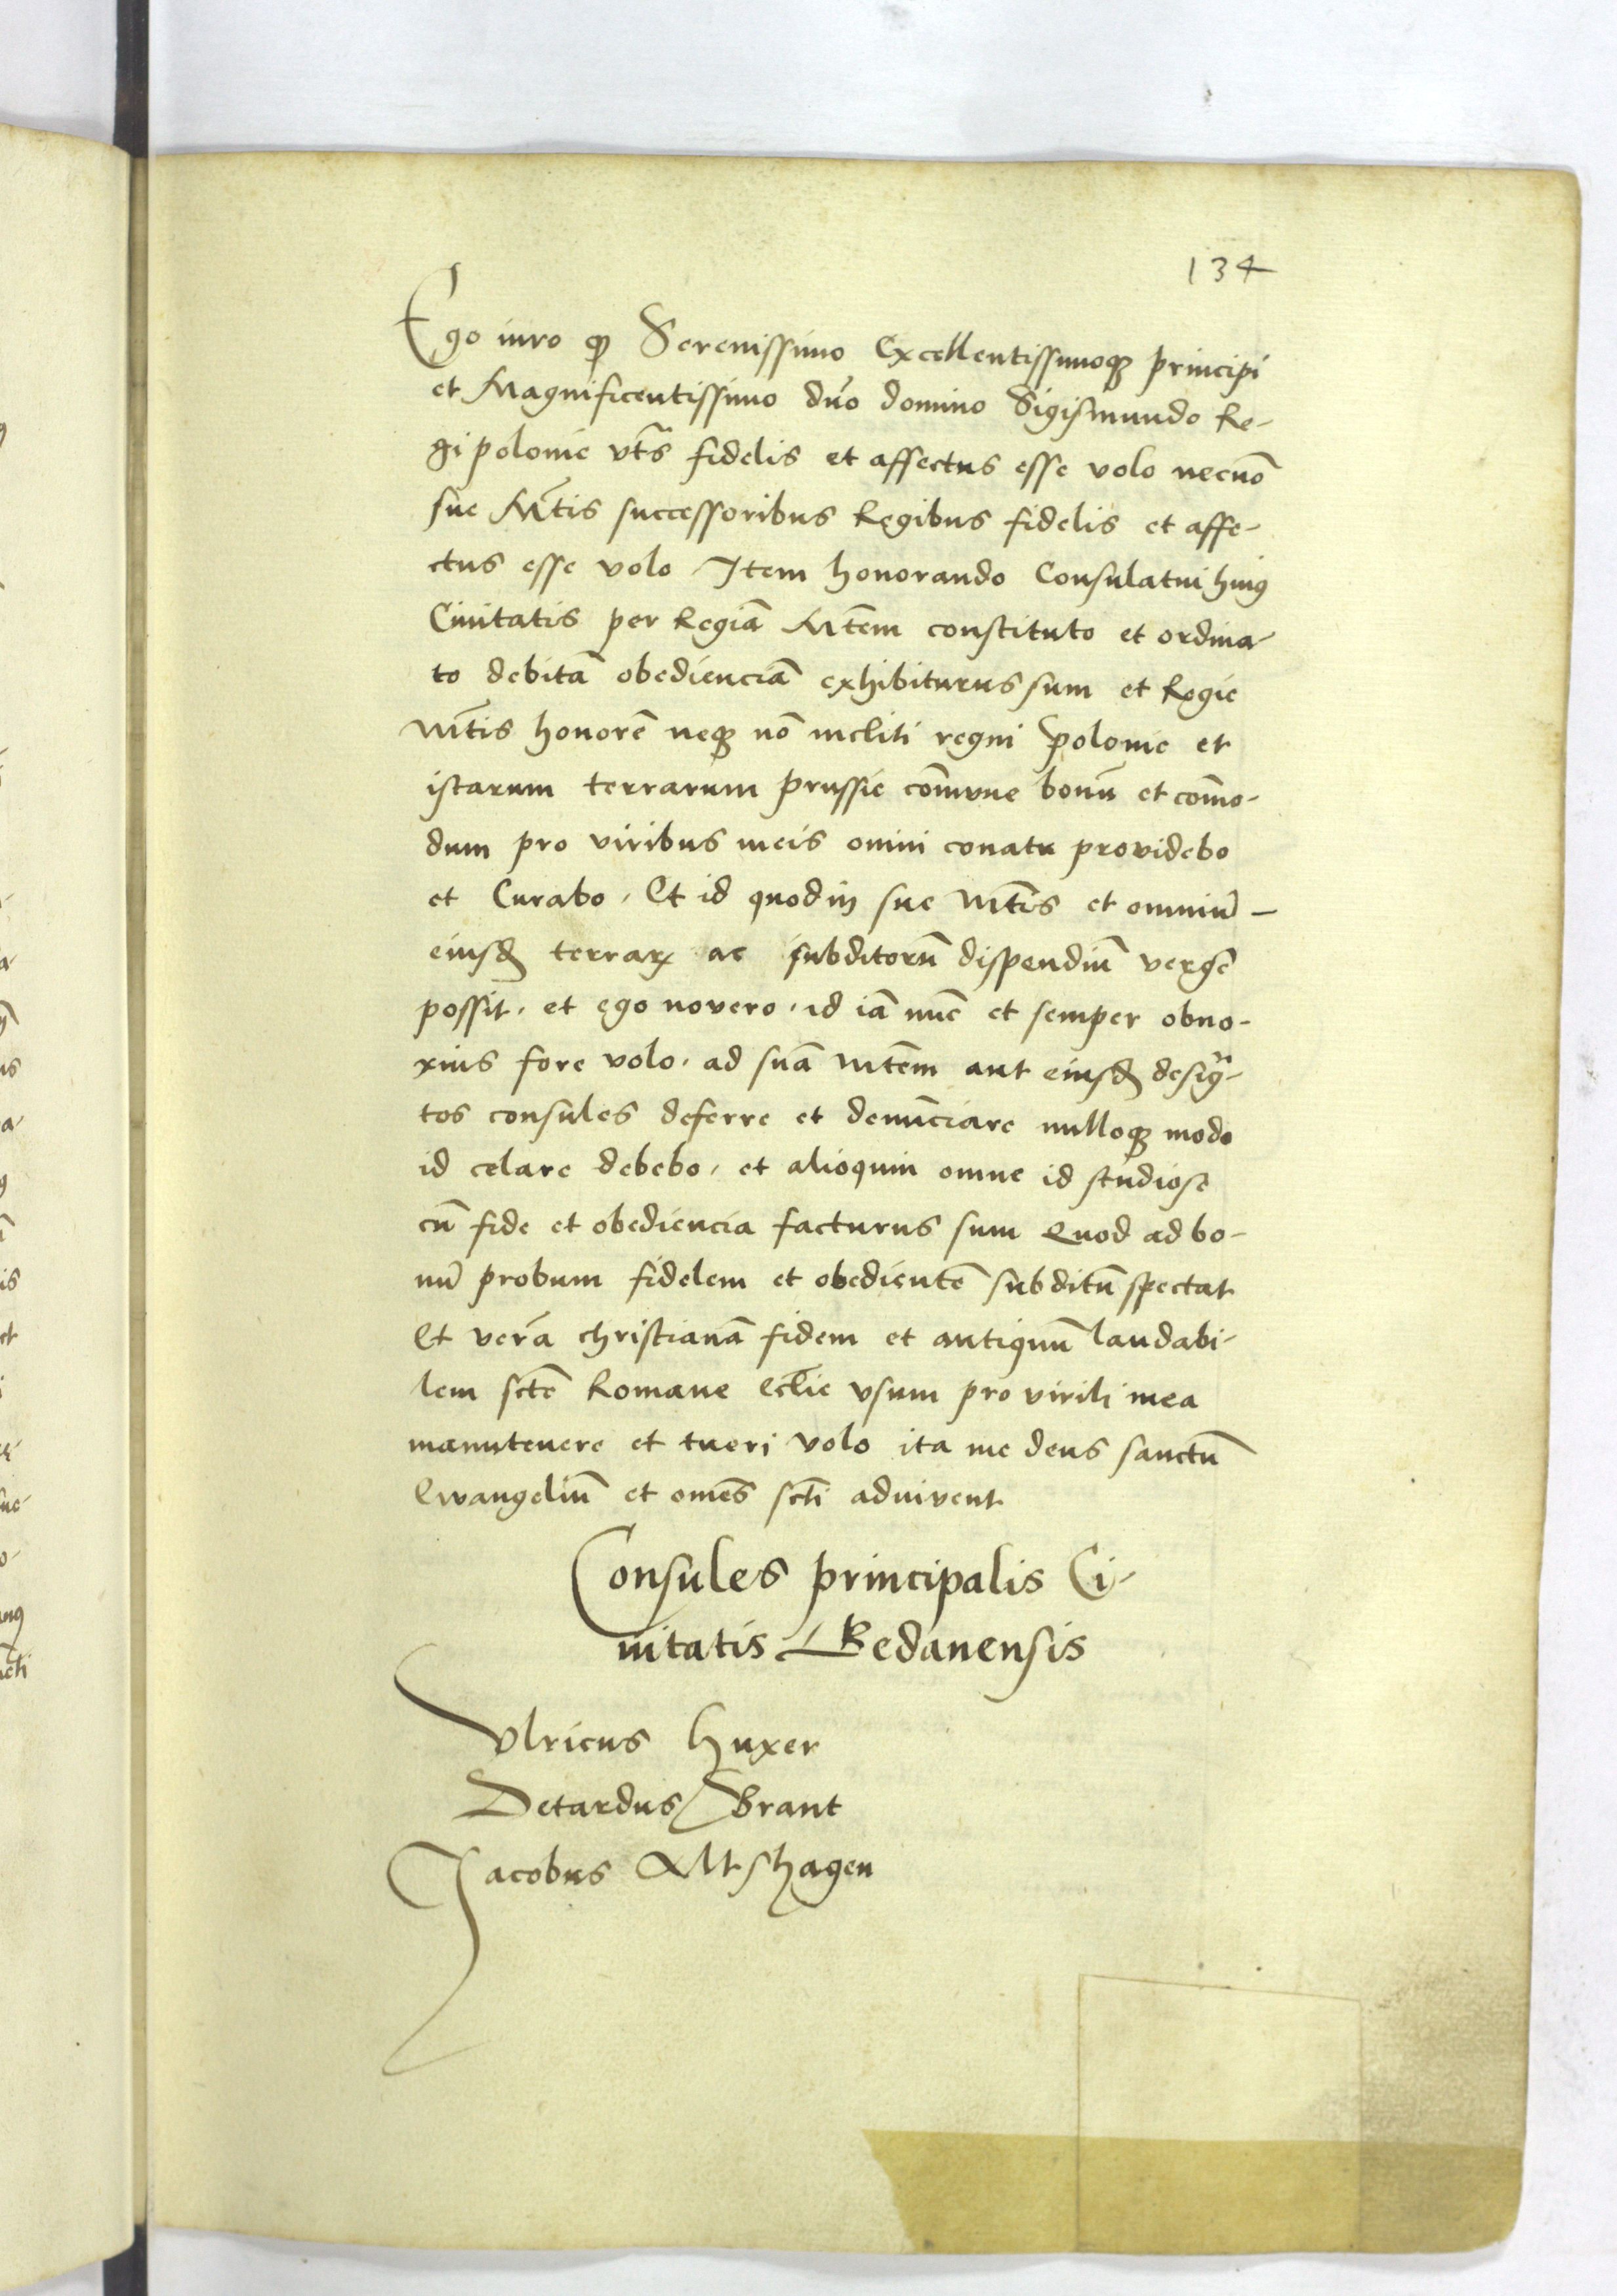 134
Ego iuro qp Serenissimo Excellentissimoqȝ principi
et Magnificentissimo dn̄o domino Sigismundo Re-
gi polonie vts̄ fidelis et affectus esse volo necnō
sue Mt̄is successoribus Regibus fidelis et affe-
ctus esse volo Item honorando Consulatui huiꝰ
Ciuitatis per Regiā Mt̄em constituto et ordina-
to debitā obedienciā exhibiturus sum et Regie
Mt̄is honorē neqȝ nō incliti regni polonie et
istarum terrarum prussie com̄vne bonū et com̄o-
dum pro viribus meis omni conatu providebo
et Curabo. Et id quod in sue Mt̄is et omniū
eiusd̄ terrarꝝ ac subditorū dispendiū vergē
possit. et ego novero. id iā nūc et semper obno-
xius fore volo. ad suā Mt̄em aut eiusd̄ desigᷓ-
tos consules deferre et denūciare nulloqȝ modo
id celare debebo. et alioquin omne id studiose
cū fide et obediencia facturus sum Quod ad bo-
nū probum fidelem et obedientē subditū spectat
Et verā christianā fidem et antiquū laudabi-
lem sctē Romane Ecl̄ie vsum pro virili mea
manutenere et tueri volo ita me deus sanctū
Ewangeliū et omēs sct̄i aduivent
Consules principalis Ci-
uitatis Gedanensis
Vlricus Huxer
Detardus Brant
Jacobus Altshagen